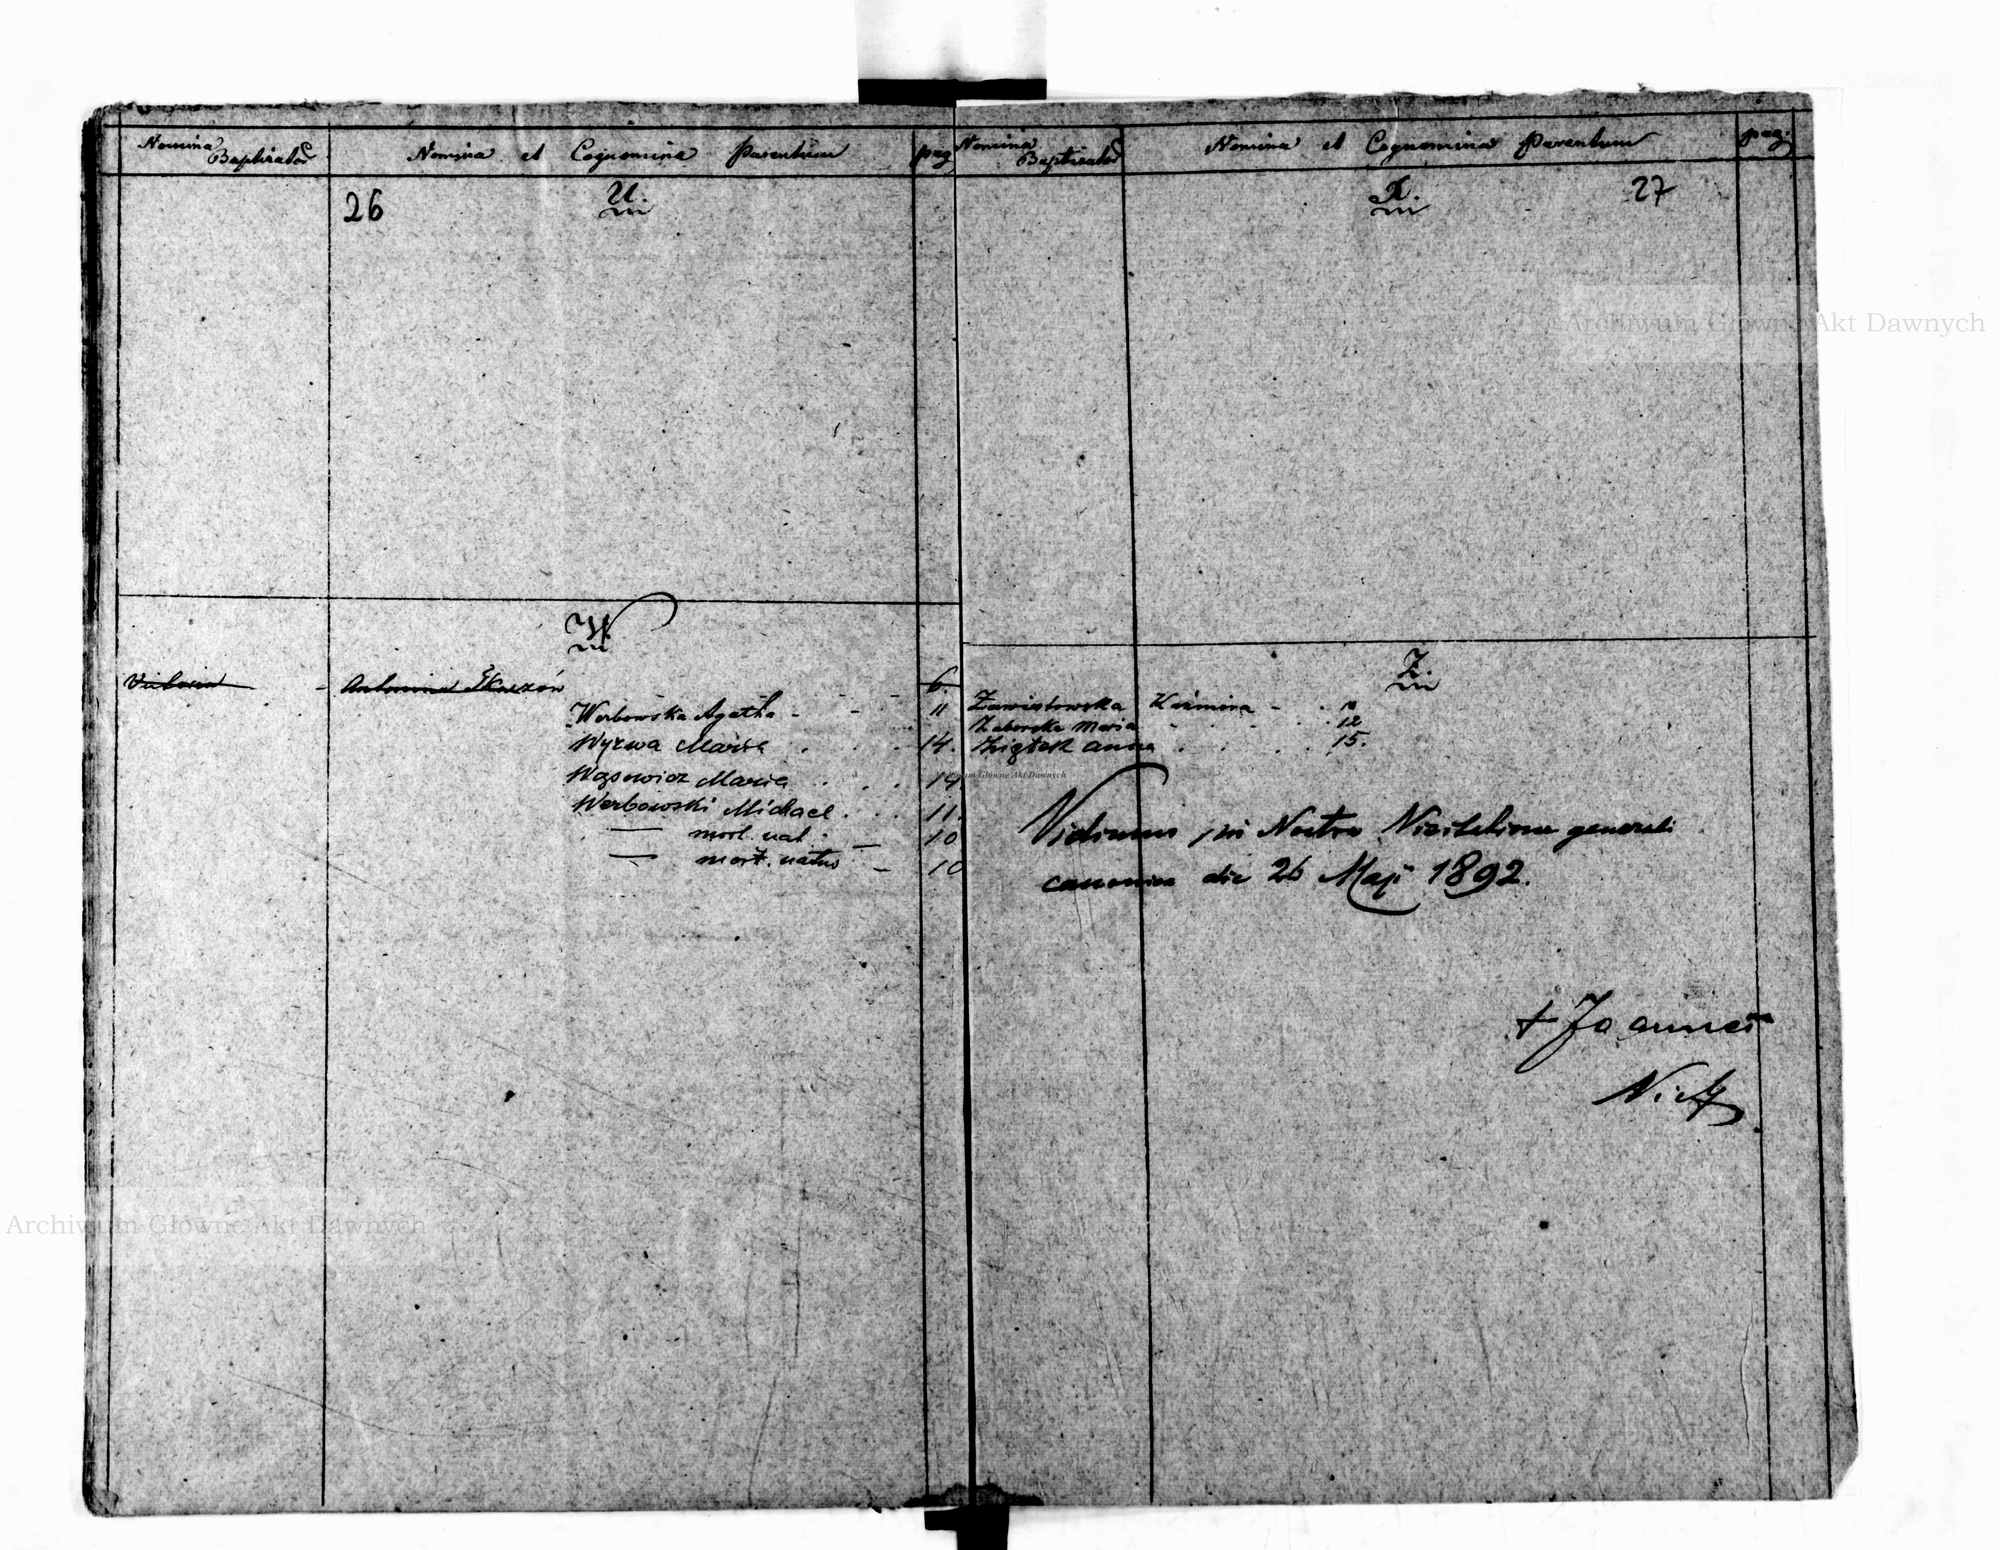 Nomina Baptisator
Nomina et Cognomina Parentum
pag
26
U.
W.
Antonina
6.
Werbowska Agatha - - - 11
Wyrwa Maria . . . 14.
Wąsowicz Maria . . . 14
Werbowski Michael . . . 11.
— mort. nat. — 10
— mort. natus — 10
Nomina Baptisator
Nomina et Cognomina Parentum
pag.
X.
27
Z.
Zawistowska Kazimira - . 10
Zaborska Maria . . . 12
Ziętek Anna . . . . 15.
Vidimus in Nostra Visitatione generali
canonica die 26 Maji 1892.
+ Joannes
Archiwum Główne Akt Dawnych
Archiwum Główne Akt Dawnych
Archiwum Główne Akt Dawnych